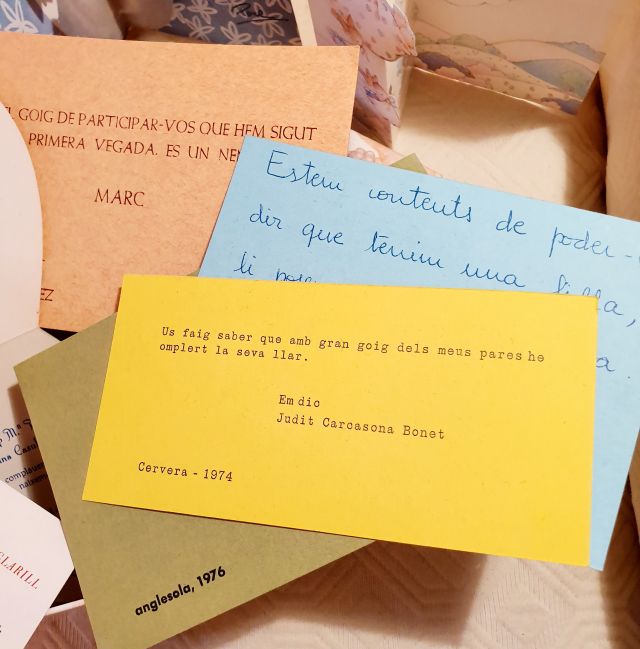 EL GOIG DE PARTICIPAR-VOS QUE HEM SIGUT
PRIMERA VEGADA. ES UN NEN
MARC
EZ
Estem contents de poder-
dir que tenim una filla,
li
a.
Us faig saber que amb gran goig dels meus pares he
omplert la seva llar.
Em dic
Judit Carcasona Bonet
Cervera - 1974
anglesola, 1976
Mª
CLARILL